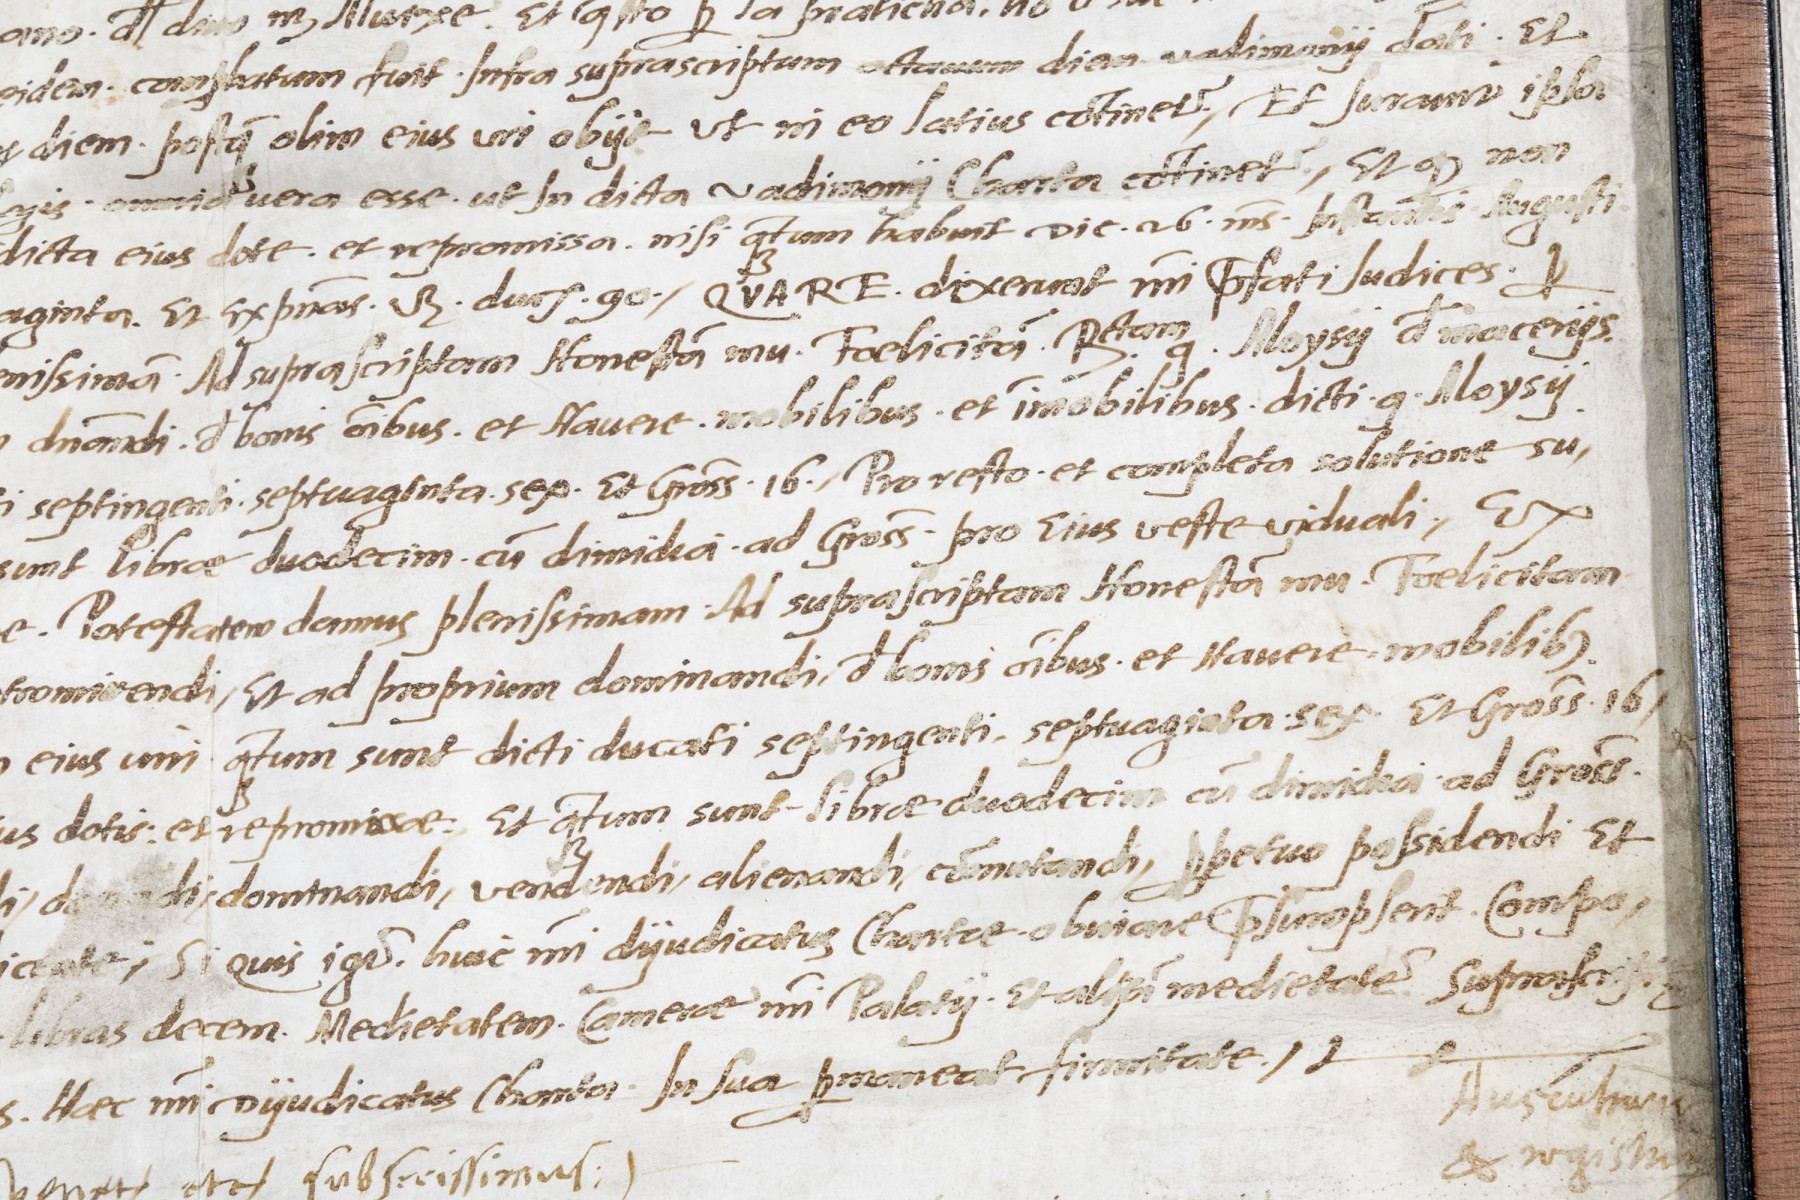 ano. d̄ dicto m̄ Mutxe. Et q̄sto p̱ la praticha. no
eidem. comp̱batum fuit. Infra suprascriptum octauum diem vadimonij dati. Et
diem. postq̄ olim eius uiri obijt ut in eo latius cōtinet᷑, Et Iurauit ipsa
legis. omnia uera esse. ut In dicta vadimonij Charta cōtinet᷑, Et q non
dicta eius dote. et repromissa. nisi q̄tum habuit Die. 26. m̄s. Instantis Augusti
aginta. Et Expn̄as. duc. 90., QVARE. dixerunt nr̄i p̄fati Iudices. p̱
enissimā. Ad suprascriptam Honestā mu. Foelicitā. Rctam q. Aloysij d̄ macerijs.
dnāndi. d̄ bonis oībus. et Hauere. mobilibus. et īmobilibus. dicti. q. Aloysij
septingenti. septuaginta. sex. Et Gross̄. 16., Pro resto. et completa solutione su,
sunt librae duodecim. cū dimidia. ad Gross̄. pro Eius veste viduali, Ex
e. Potestatem damus plenissimam. Ad suprascriptam Honestā mu. Foelicitam
tromittendi, Et ad proprium dominandi, d̄ bonis oībus. et Hauere. mobilib3.
eius uiri q̄tum sunt dicti ducati septingenti. septuaginta. sex. Et Gross̄. 16,
ius dotis. et repromissae. Et q̄tum sunt librae duodecim cū dimidia ad Gross̄.
di, dominandi, vendendi, alienandi, cōmutandi, p̱petuo possidendi Et
Si Quis igr̄. huic nr̄i dijudicatus Chartae obuiare p̄sumpserit. Compo,
libras decem. Medietatem. Camerae nr̄i Palatij. Et altr̄ā medietatē. Suprascripti
s. Haec nr̄i Dijudicatus Charta. In sua p̱maneat firmitate.,
Auscultau
& regist
subscrissimus;